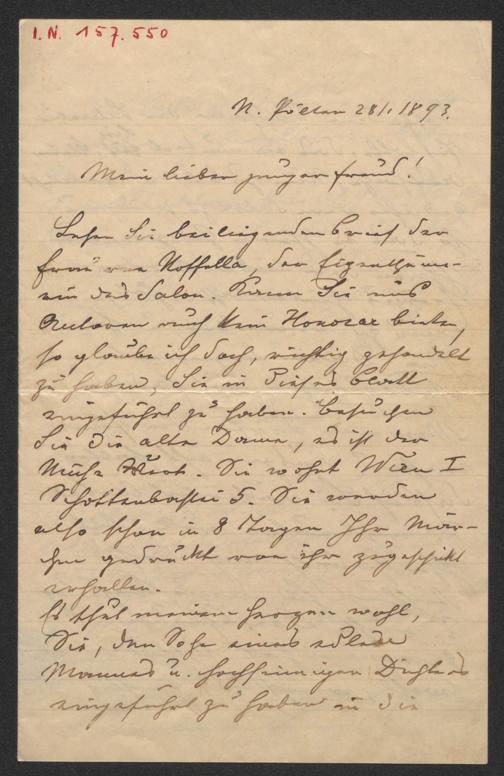 I.N. 157.550
St. Pölten 28/1 1893.
Mein lieber junger Freund!
Lesen Sie beiliegenden Brief der
Frau von Noffella, der Eigenthüme-
rin des Salon. Kann Sie uns
Autoren auch kein Honorar bieten,
so glaube ich doch, richtig gehandelt
zu haben, Sie in dieses Blatt
eingeführt zu haben. Besuchen
Sie die alte Dame, es ist der
Mühe Wert. Sie wohnt Wien I
Schottenbastei 5. Sie werden
also schon in 8 Tagen Ihr Mär-
chen gedruckt von ihr zugeschickt
erhalten.
Es thut meinem Herzen wohl,
Sie, den Sohn eines edlen
Mannes u. hochsinnigen Dichters
eingeführt zu haben in die